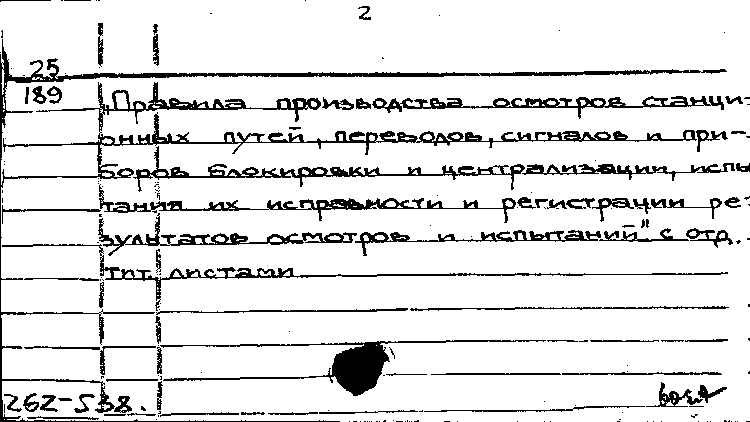 2
25
189
„Правила производства осмотров станци-
онных путей, переводов, сигналов и при-
боров блокировки и централизации, испы
тания их исправности и регистрации ре-
зультатов осмотров и испытаний" с отд.
тит. листами
262-538.